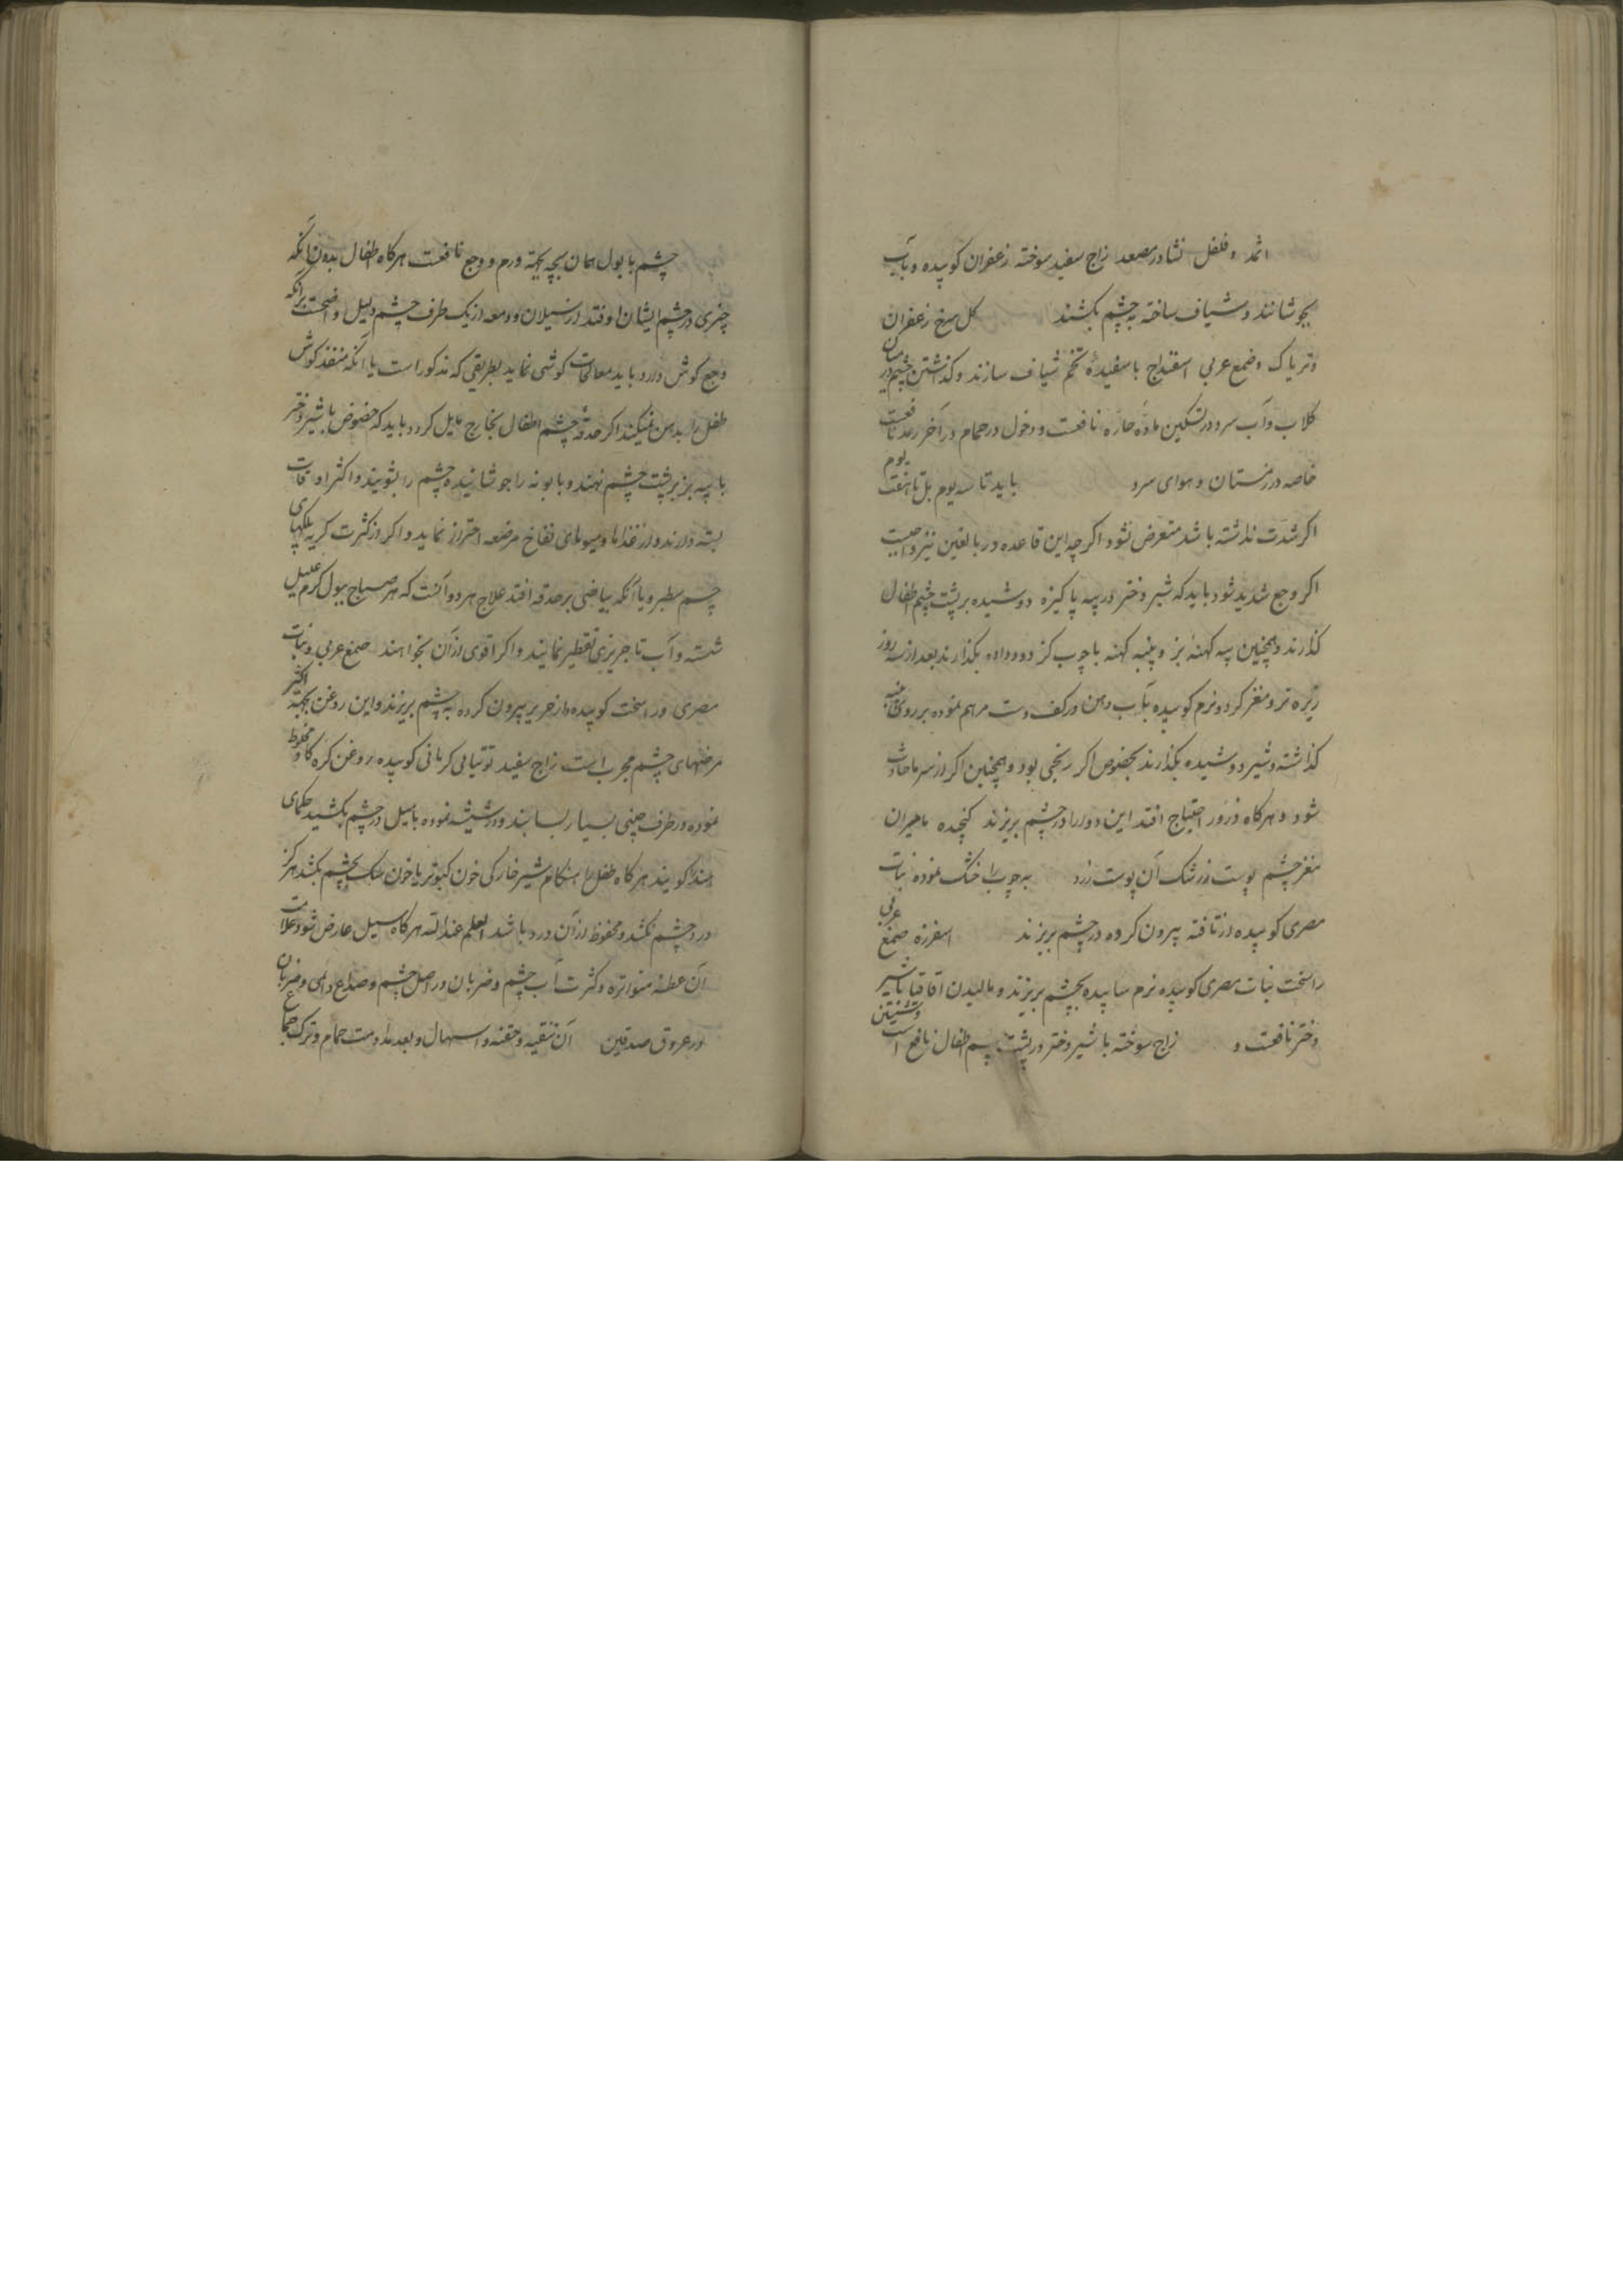 اثمد و فلفل نشادر مصعد زاج سفید سوخته زعفران کوبیده و بآب
بجوشانند و شیاف ساخته به چشم بکشند کل سرخ زعفران
و تریاک و صمغ عربی اسفیداج با سفیدهٔ تخم شیاف سازند و کذاشتن چشم در میان
کلاب و آب سرد در تسکین مادّه حارّه نافعست و دخول در حمام در آخر رمد نافعست
خاصه در زمستان و هوای سرد باید تا سه یوم بل تا هفت یوم
اکر شدّت نداشته باشد متعرض نشود اکرچه این قاعده در بالغین نیز واجبست
اکر وجع شدید شود باید که شیر دختر در پیه پاکیزه دوشیده بر پشت چشم اطفال
کذارند و همچنین پیه کهنه بز و پنبه کهنه با چوب کز دود داده بکذارند بعد از سه روز
زیره تر و مغز کردو نرم کوبیده بآب دهن در کف دست مرهم نموده بر روی پنبه
کذاشته و شیر دوشیده بکذارند بخصوص اکر ریحی بود و همچنین اکر از سرما حادث
شود و هرکاه ذرور احتیاج افتد این دوا را در چشم بریزند کنجده مامیران
مغز چشم پوست زرشک آن پوست زرد به چوب را خشک نموده نبات
مصری کوبیده از تافته بیرون کرده در چشم بریزند اسفرزه صمغ عربی
راسخت نبات مصری کوبیده نرم ساییده بچشم بریزند و مالیدن اقاقیا با شیر
دختر نافعست و زاج سوخته با شیر دختر در پشت چشم اطفال نافع است و شستن
چشم با بول همان بچه بجهة ورم و وجع نافعست هرکاه اطفال بدون آنکه
چیزی در چشم ایشان اوفتد از سیلان دمعه از یک طرف چشم دلیل واضحست بر آنکه
وجع کوش دارد باید معالجات کوشی نماید بطریقی که مذکور است یا آنکه منفذ کوش
طفل را بدهن میکند اکر حدقه چشم اطفال بخارج مایل کردد باید که حضض با شیر دختر
با پیه بز بر پشت چشم نهند و بابونه را جوشانیده چشم را بشویند و اکثر اوقات
بسته دارند و از غذاها و میوهای نفاخ مرضعه احتراز نماید و اکر از کثرت کریه پلکهای
چشم سطبر و یا آنکه بیاضی بر حدقه افتد علاج هر دو آنست که هر صباح ببول کرم علیل
شسته و آب تاجریزی تقطیر نمایند و اکر اقوی از آن بخواهند صمغ عربی و نبات
مصری و راسخت کوبیده از حریر بیرون کرده به چشم بریزند و این روغن بجهة اکثر
مرضهای چشم مجرب است زاج سفید توتیای کرمانی کوبیده بروغن کره کاو مخلوط
نموده در ظرف چینی بسیار بسایند و در شیشه نموده با میل در چشم بکشید حکمای
هند کویند هرکاه طفل را هنکام شیرخارکی خون کبوتر یا خون سک بچشم بکشد هرکز
درد چشم نکشد و محفوظ از آن درد باشد العلم عند الله هرکاه سبل عارض شود علامت
آن عطسه متواتره و کثرت آب چشم و ضربان در اصل چشم و صداع دائمی و ضربان
در عروق صدقین آن تنقیه و حقنه و اسهال و بعد مداومت حمام و ترک جماع